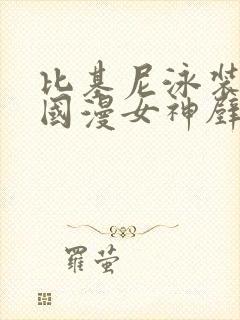 比基尼泳裝
國漫女神壁
羅萤